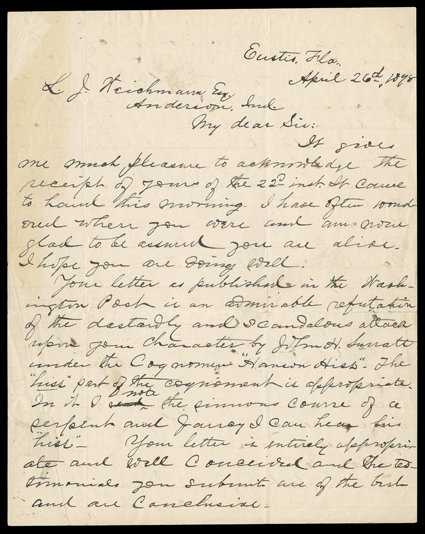 Eustis, Fla.
April 26th, 1898
L. J. Weichmann Esq
Anderson, Ind
My dear Sir:
It gives
me much pleasure to acknowledge the
receipt of yours of the 22d inst. It came
to hand this morning. I have often wond-
ered where you were and am now
glad to be assured you are alive.
I hope you are doing well.
Your letter as published in the Wash-
ington Post is an admirable refutation
of the dastardly and scandalous attack
upon your character by John H. Surratt
under the Cognomen "Hanson Hiss". The
"hiss" part of the cognoment is appropriate.
In it I note the sinuous course of a
serpent and fancy I can hear his
"hiss"- Your letter is entirely appropri-
ate and well conceived and the tes-
timonials you submit are of the best
and are conclusive.